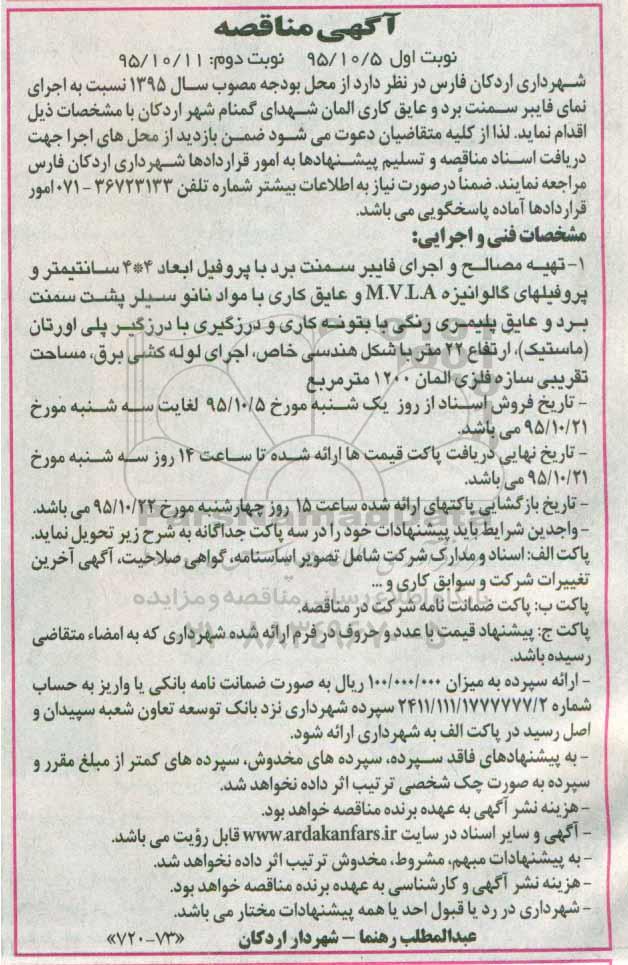 آگهی مناقصه
نوبت اول ۹۵/۱۰/۵ نوبت دوم: ۹۵/۱۰/۱۱
شهرداری اردکان فارس در نظر دارد از محل بودجه مصوب سال ۱۳۹۵ نسبت به اجرای
نمای فایبر سمنت برد و عایق کاری المان شهدای گمنام شهر اردکان با مشخصات ذیل
اقدام نماید. لذا از کلیه متقاضیان دعوت می شود ضمن بازدید از محل های اجرا جهت
دریافت اسناد مناقصه و تسلیم پیشنهادها به امور قراردادها شهرداری اردکان فارس
مراجعه نمایند. ضمناً درصورت نیاز به اطلاعات بیشتر شماره تلفن ۳۶۷۲۳۱۳۳ - ۰۷۱ امور
قراردادها آماده پاسخگویی می باشد.
مشخصات فنی و اجرایی:
۱- تهیه مصالح و اجرای فایبر سمنت برد با پروفیل ابعاد ۴*۴ سانتیمتر و
پروفیلهای گالوانیزه M.V.L.A و عایق کاری با مواد نانو سیلر پشت سمنت
برد و عایق پلیمری رنگی با بتونه کاری و درزگیری با درزگیر پلی اورتان
(ماستیک)، ارتفاع ۲۲ متر با شکل هندسی خاص، اجرای لوله کشی برق، مساحت
تقریبی سازه فلزی المان ۱۲۰۰ مترمربع
- تاریخ فروش اسناد از روز یک شنبه مورخ ۹۵/۱۰/۵ لغایت سه شنبه مورخ
۹۵/۱۰/۲۱ می باشد.
- تاریخ نهایی دریافت پاکت قیمت ها ارائه شده تا ساعت ۱۴ روز سه شنبه مورخ
۹۵/۱۰/۲۱ می باشد.
- تاریخ بازگشایی پاکتهای ارائه شده ساعت ۱۵ روز چهارشنبه مورخ ۹۵/۱۰/۲۲ می باشد.
- واجدین شرایط باید پیشنهادات خود را در سه پاکت جداگانه به شرح زیر تحویل نماید.
پاکت الف: اسناد و مدارک شرکت شامل تصویر اساسنامه، گواهی صلاحیت، آگهی آخرین
تغییرات شرکت و سوابق کاری و ...
پاکت ب: پاکت ضمانت نامه شرکت در مناقصه.
پاکت ج: پیشنهاد قیمت با عدد و حروف در فرم ارائه شده شهرداری که به امضاء متقاضی
رسیده باشد.
- ارائه سپرده به میزان ۱۰۰/۰۰۰/۰۰۰ ریال به صورت ضمانت نامه بانکی یا واریز به حساب
شماره ۲۴۱۱/۱۱۱/۱۷۷۷۷۷۷/۲ سپرده شهرداری نزد بانک توسعه تعاون شعبه سپیدان و
اصل رسید در پاکت الف به شهرداری ارائه شود.
- به پیشنهادهای فاقد سپرده، سپرده های مخدوش، سپرده های کمتر از مبلغ مقرر و
سپرده به صورت چک شخصی ترتیب اثر داده نخواهد شد.
- هزینه نشر آگهی به عهده برنده مناقصه خواهد بود.
- آگهی و سایر اسناد در سایت www.ardakanfars.ir قابل رؤیت می باشد.
- به پیشنهادات مبهم، مشروط، مخدوش ترتیب اثر داده نخواهد شد.
- هزینه نشر آگهی و کارشناسی به عهده برنده مناقصه خواهد بود.
- شهرداری در رد یا قبول احد یا همه پیشنهادات مختار می باشد.
عبدالمطلب رهنما - شهردار اردکان «۷۲۰-۷۳»
پایگاه اطلاع رسانی مناقصه و مزایده